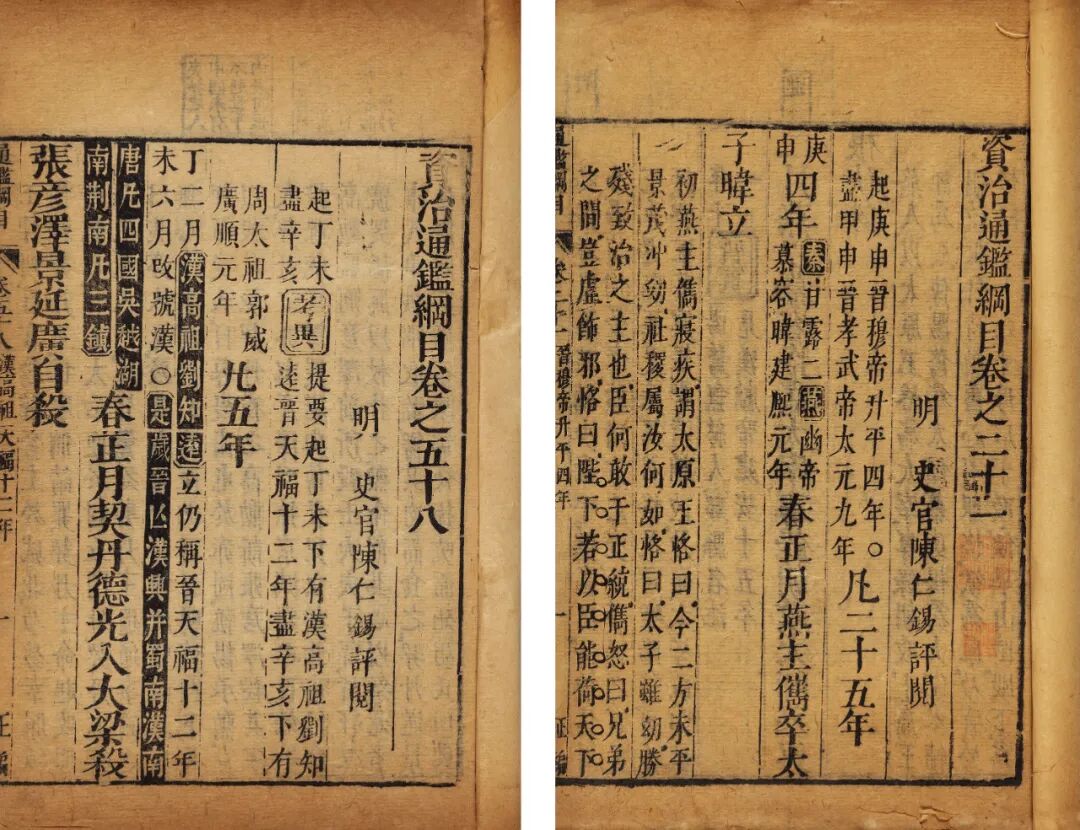 資治通鑑綱目卷之二十一
明 史官陳仁錫評閱
起庚申晉穆帝升平四年〇
盡甲申晉孝武帝太元九年 凡二十五年
庚申 四年 秦甘露二 燕幽帝
慕容暐建熙元年 春正月燕主儁卒太
子暐立
初燕主儁寢疾謂太原王恪曰今二方未平
景茂沖幼社稷屬汝何如恪曰太子雖幼勝
殘致治之主也臣何敢干正統儁怒曰兄弟
之間豈虛飾邪恪曰陛下若以臣能荷天下
通鑑綱目 卷二十一 晉穆帝升平四年 一 正編
資治通鑑綱目卷之五十八
明 史官陳仁錫評閱
起丁未 考異 提要起丁未下有漢高祖劉知
盡辛亥 遠晉天福十二年盡辛亥下有
周太祖郭威
廣順元年 凡五年
丁 二月漢高祖劉知遠立仍稱晉天福十二年
未 六月改號漢〇是歲晉亾漢興并蜀南漢南
唐凡四國吳越湖
南荆南凡三鎮 春正月契丹德光入大梁殺
張彥澤景延廣自殺
通鑑綱目 卷五十八 漢高祖天福十二年 一 正編